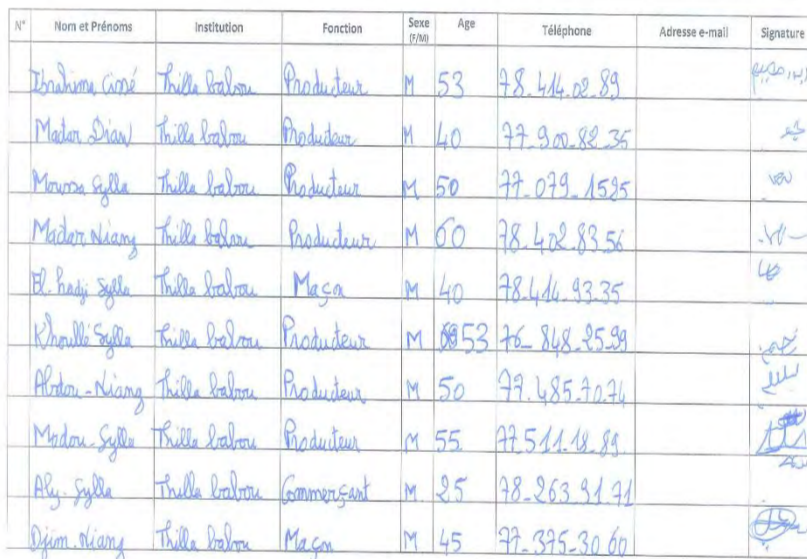 N° Nom et Prénoms Institution Fonction Sexe (F/M) Age Téléphone Adresse e-mail Signature
Ibrahima Cissé Thilla babou Producteur M 53 78.414.02.89
Madar Diaw Thilla babou Producteur M 40 77-900-82-35
Moussa Sylla Thilla babou Producteur M 50 77-079-1595
Madar Niang Thilla babou Producteur M 60 78.402.83.56
El. hadji Sylla Thilla babou Maçon M 40 78.414.93.35
Khoullé Sylla Thilla babou Producteur M 53 76-848-25-99
Abdou-Niang Thilla babou Producteur M 50 77.485.70.74
Modou-Sylla Thilla babou Producteur M 55 77.511.18.89
Aly-Sylla Thilla babou Commerçant M 25 78-263.91.71
Djim-Niang Thilla babou Maçon M 45 77-375-30 60